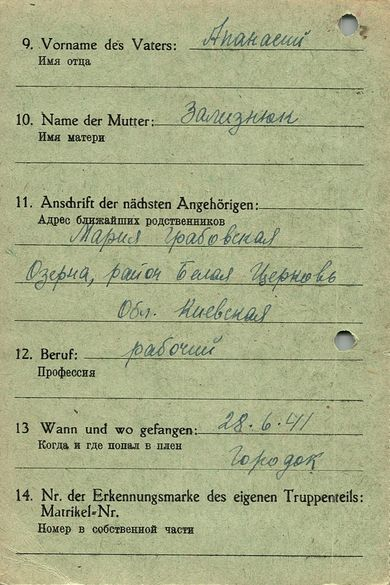 9. Vorname des Vaters: Апанасий
Имя отца
10. Name der Mutter: Зализнюк
Имя матери
11. Anschrift der nächsten Angehörigen:
Адрес ближайших родственников
Мария Грабовская
Озерна, район Белая Церковь
Обл. Киевская
12. Beruf: рабочий
Профессия
13 Wann und wo gefangen: 28.6.41
Когда и где попал в плен
Городок
14. Nr. der Erkennungsmarke des eigenen Truppenteils:
Matrikel-Nr.
Номер в собственной части